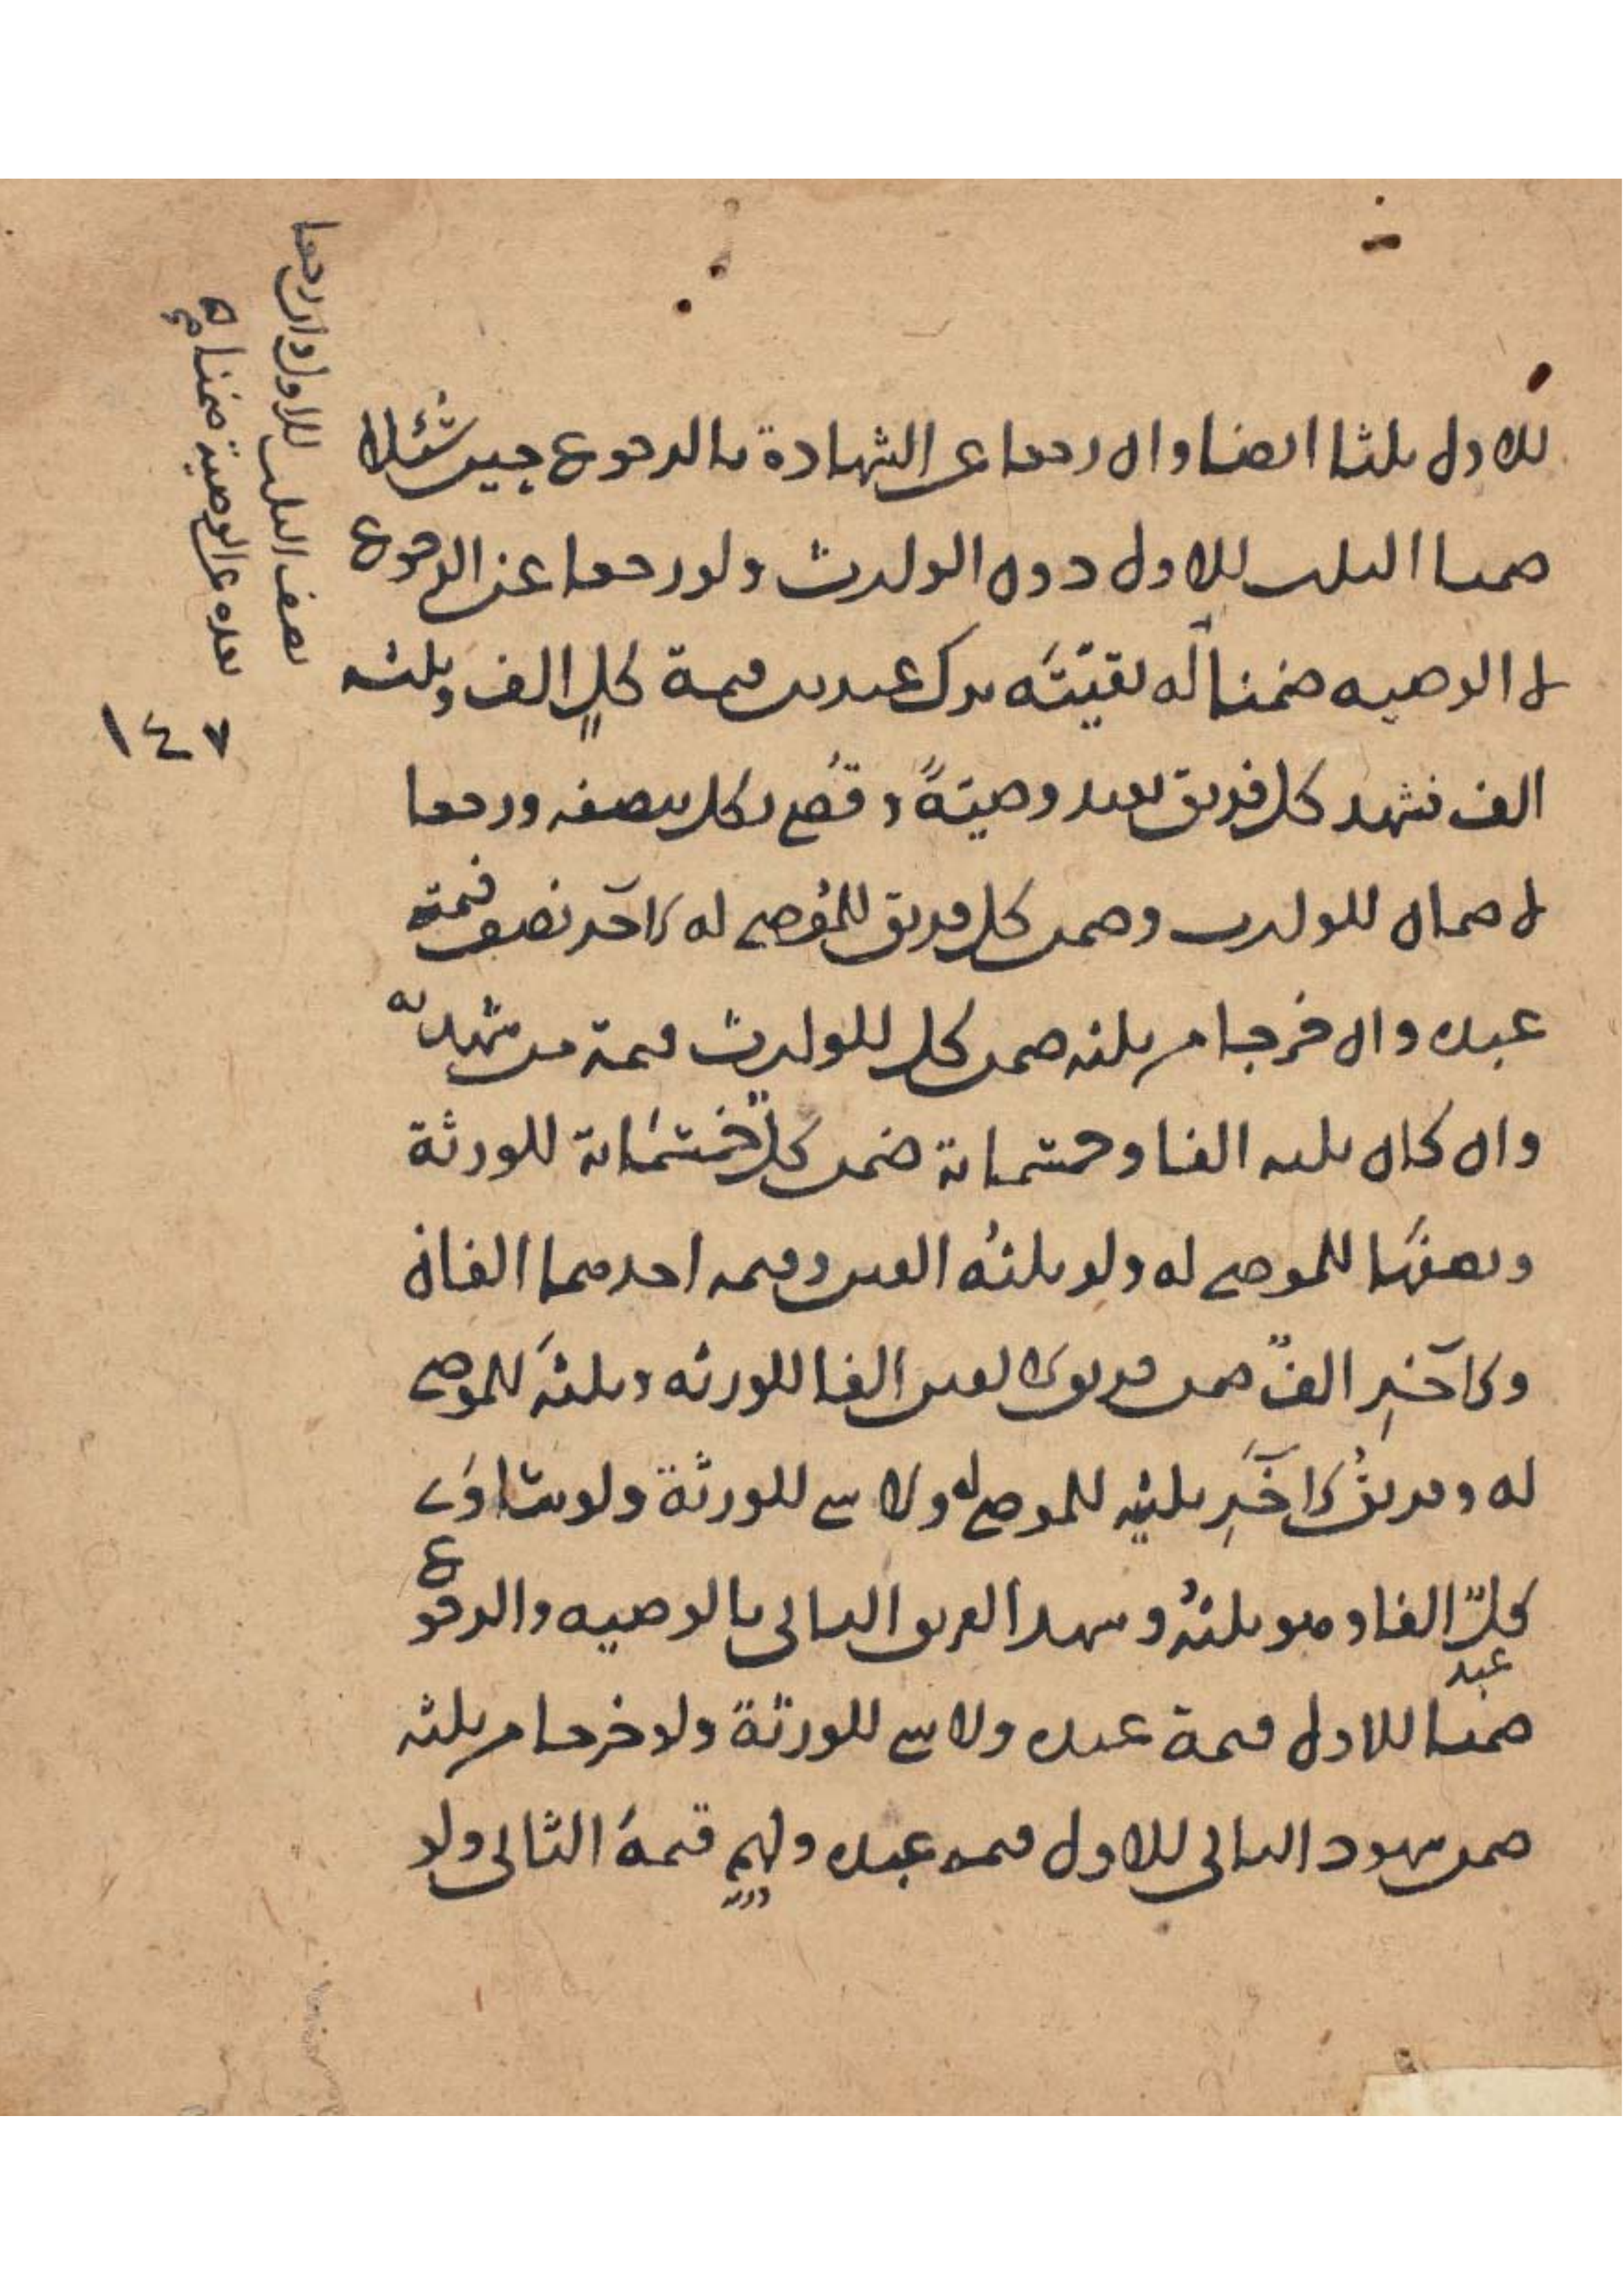 للاول ثلثا ايضا وان رجعا عن الشهادة بالرجوع حين سئلا
ضمنا الثلث للاول دون الوارث ولو رجعا عن الرجوع
لا الوصيه ضمنا له بقيته ترك عبدين قيمة كل الف وثلثه
الف فشهد كل فريق بعبد وصية وقضي لكل بنصفه ورجعا
لا ضمان للوارث وضمن كل فريق للموصى له الآخر نصف قيمة
عبده وان خرجا من ثلثه ضمن كل للوارث قيمة من شهد له
وان كان ثلثه الفا وخمسمائة ضمن كل خمسمائة للورثة
ونصفها للموصى له ولو ثلثه الفين وقيمه احدهما الفان
والآخر الف ضمن فريق الالفين الفا للورثه وثلثه للموصى
له وفريق الآخر ثلثيه للموصى له ولا شي للورثة ولو ساوى
كل الفا وهو ثلثه وشهد الفريق الثاني بالوصيه والرجوع
ضمنا للاول قيمة عبده ولا شي للورثة ولو خرجا من ثلثه
ضمن شهود الثاني للاول قيمه عبده ولهم قيمة الثاني ولو
نصف الثلث للاول وان رجعا
بعده عن الوصية ضمناه
١٤٧